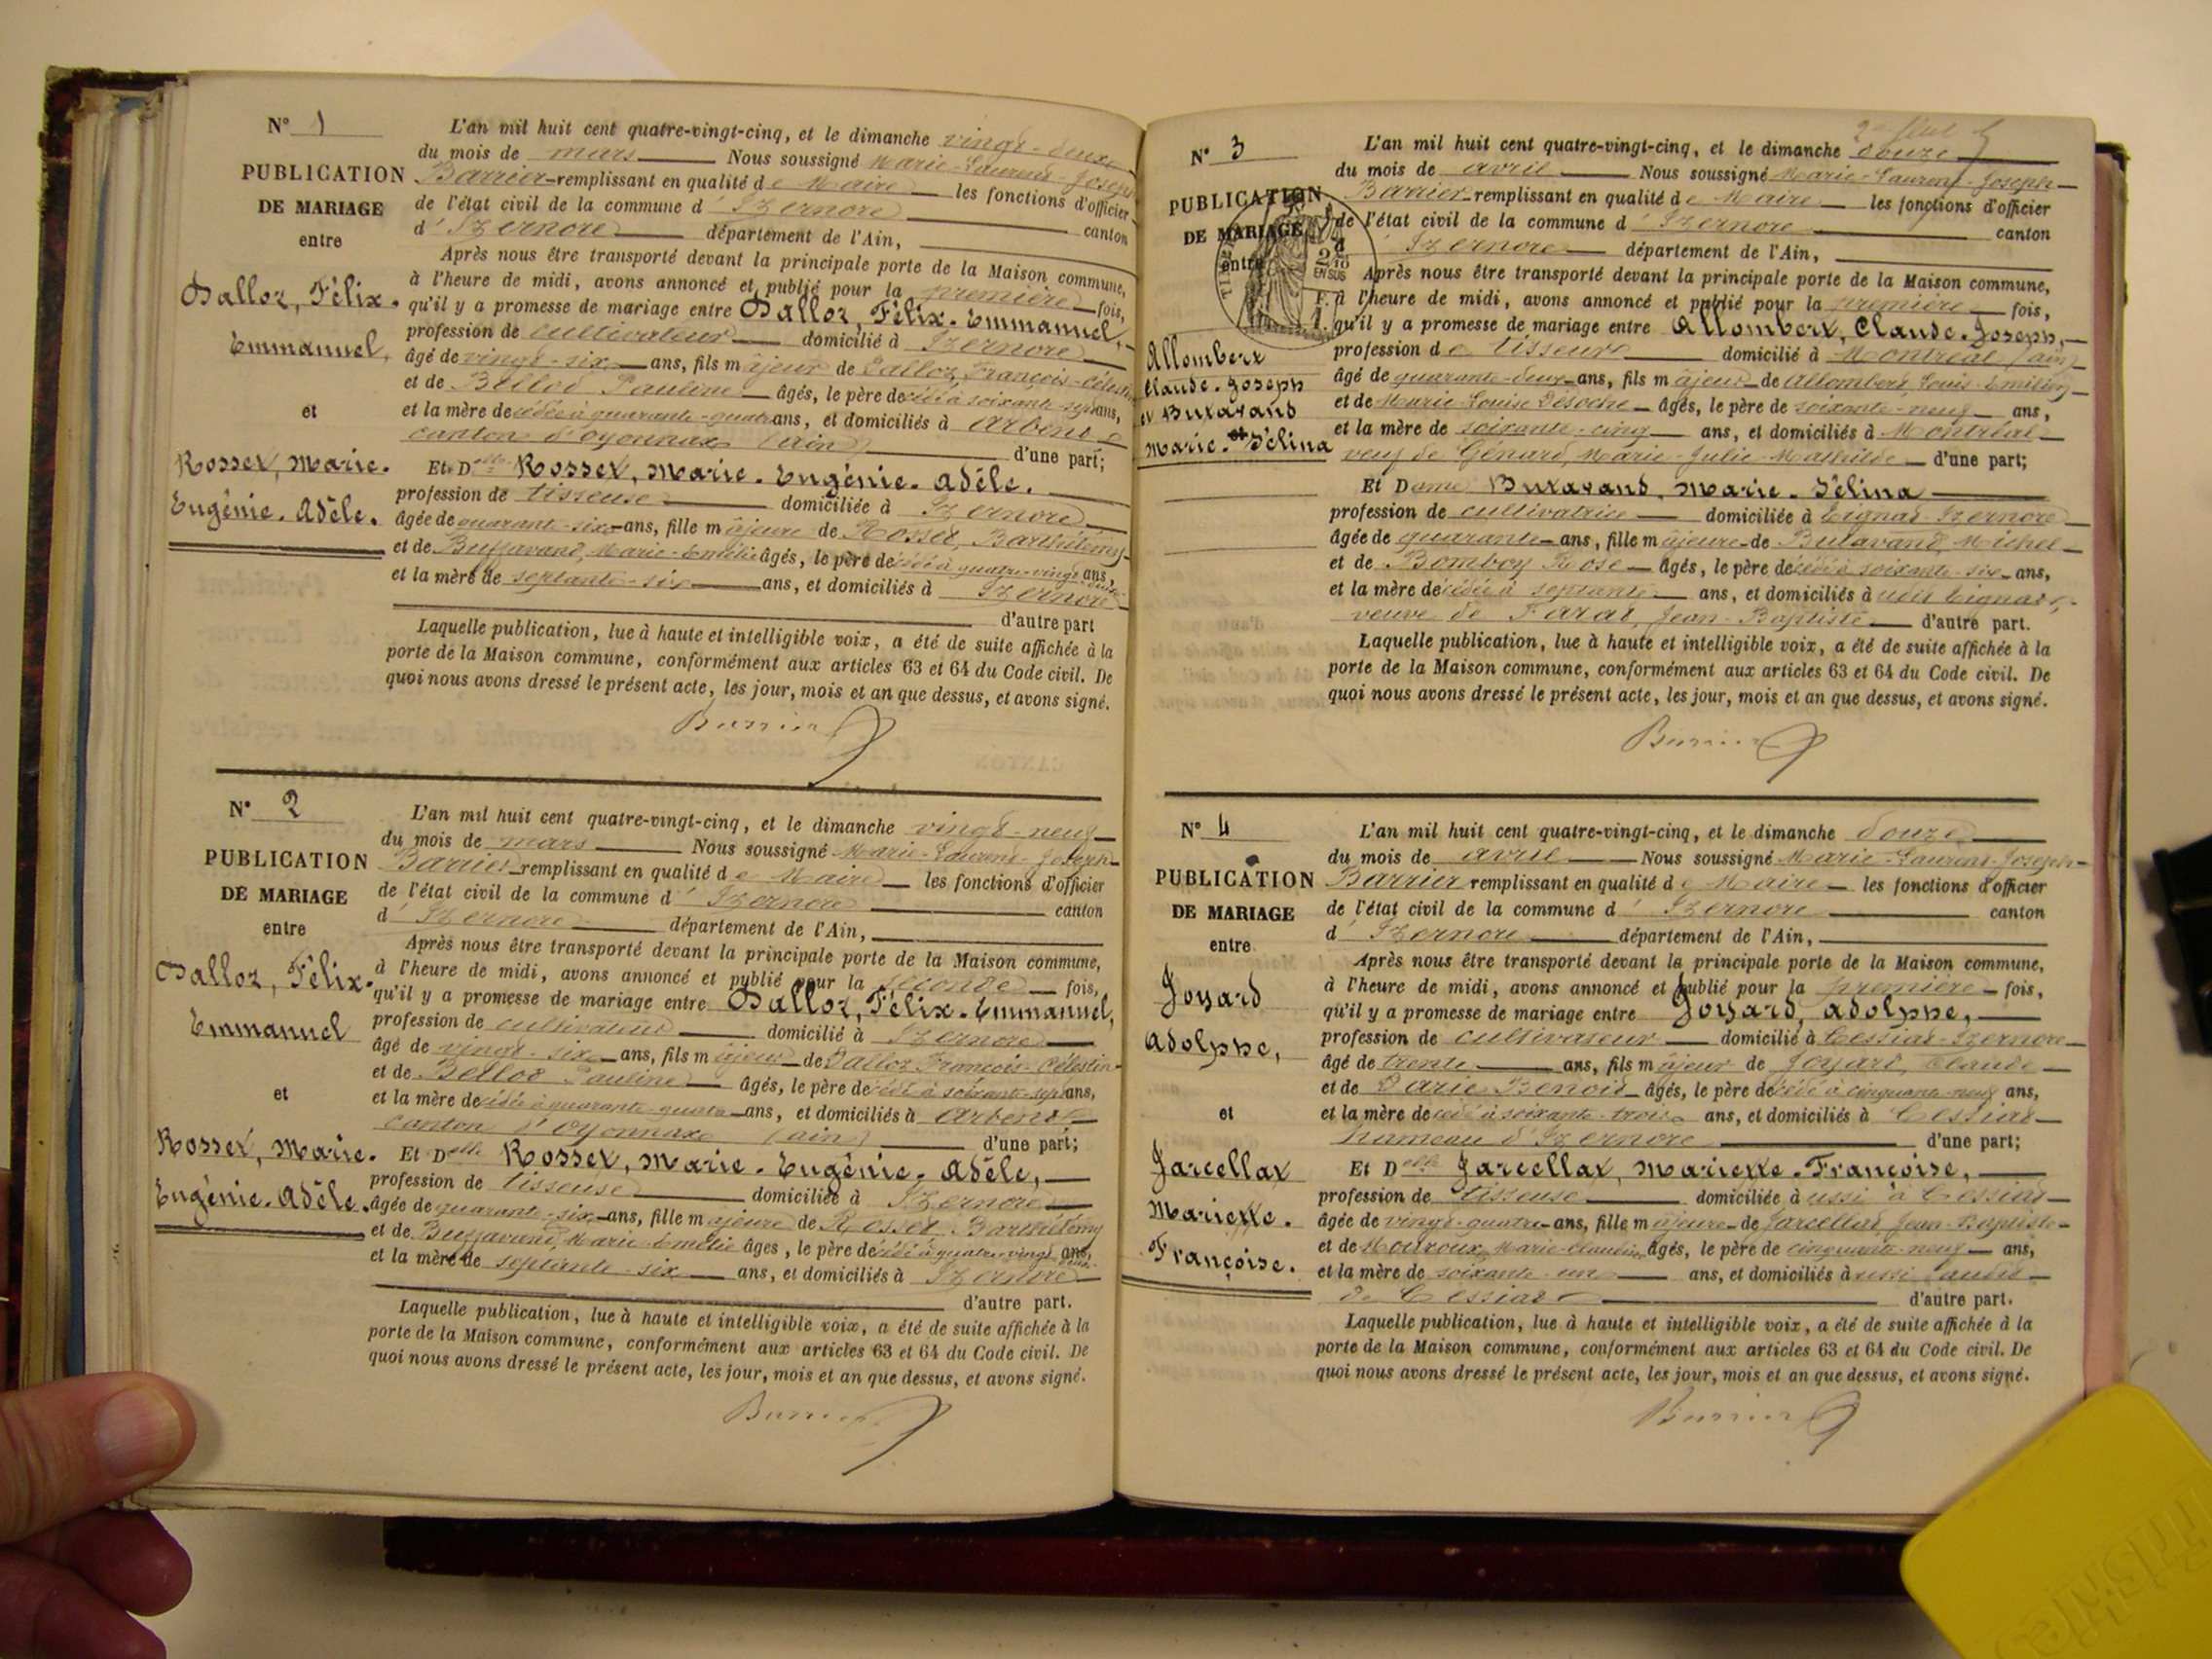 N° 1
PUBLICATION
DE MARIAGE
entre
Dalloz, Félix.
Emmanuel,
et
Rosset, Marie.
Eugénie. Adèle.
L'an mil huit cent quatre-vingt-cinq, et le dimanche vingt-deux
du mois de mars Nous soussigné Marie-Laurent-Joseph
Barrier remplissant en qualité de Maire les fonctions d'officier
de l'état civil de la commune d'Izernore canton
d'Izernore département de l'Ain,
Après nous être transporté devant la principale porte de la Maison commune,
à l'heure de midi, avons annoncé et publié pour la première fois,
qu'il y a promesse de mariage entre Dalloz, Félix. Emmanuel,
profession de cultivateur domicilié à Izernore
âgé de vingt-six ans, fils majeur de Dalloz, François-Célestin
et de Bellod Pauline âgés, le père décédé à soixante-sept ans,
et la mère décédée à quarante-quatre ans, et domiciliés à Arbent
canton d'Oyonnax (Ain) d'une part;
Et Delle Rosset, Marie. Eugénie. Adèle.
profession de tisseuse domiciliée à Izernore
âgée de quarant-six ans, fille majeure de Rosset, Barthélémy
et de Buffavand, Marie-Emélie âgés, le père décédé à quatre-vingt-deux ans,
et la mère de septante-six ans, et domiciliés à Izernore
d'autre part
Laquelle publication, lue à haute et intelligible voix, a été de suite affichée à la
porte de la Maison commune, conformément aux articles 63 et 64 du Code civil. De
quoi nous avons dressé le présent acte, les jour, mois et an que dessus, et avons signé.
Barrier
N° 2
PUBLICATION
DE MARIAGE
entre
Dalloz, Félix.
Emmanuel
et
Rosset, Marie.
Eugénie. Adèle.
L'an mil huit cent quatre-vingt-cinq, et le dimanche vingt-neuf
du mois de mars Nous soussigné Marie-Laurent-Joseph
Barrier remplissant en qualité de Maire les fonctions d'officier
de l'état civil de la commune d'Izernore canton
d'Izernore département de l'Ain,
Après nous être transporté devant la principale porte de la Maison commune,
à l'heure de midi, avons annoncé et publié pour la seconde fois,
qu'il y a promesse de mariage entre Dalloz, Félix. Emmanuel,
profession de cultivateur domicilié à Izernore
âgé de vingt-six ans, fils majeur de Dalloz François-Célestin
et de Bellod Pauline âgés, le père décédé à soixante-sept ans,
et la mère décédée à quarante-quatre ans, et domiciliés à Arbent
canton d'Oyonnax (Ain) d'une part;
Et Delle Rosset, Marie. Eugénie. Adèle,
profession de tisseuse domiciliée à Izernore
âgée de quarant-six ans, fille majeure de Rosset Barthélémy
et de Buffavand, Marie-Emélie âgés, le père décédé à quatre-vingt-deux ans,
et la mère de septante-six ans, et domiciliés à Izernore
d'autre part.
Laquelle publication, lue à haute et intelligible voix, a été de suite affichée à la
porte de la Maison commune, conformément aux articles 63 et 64 du Code civil. De
quoi nous avons dressé le présent acte, les jour, mois et an que dessus, et avons signé.
Barrier
N° 3
PUBLICATION
DE MARIAGE
entre
2/10
EN SUS
Allombert
Claude. Joseph
et Butavand
Marie. Sélina
L'an mil huit cent quatre-vingt-cinq, et le dimanche douze
du mois de avril Nous soussigné Marie-Laurent-Joseph
Barrier remplissant en qualité de Maire les fonctions d'officier
de l'état civil de la commune d'Izernore canton
d'Izernore département de l'Ain,
Après nous être transporté devant la principale porte de la Maison commune,
à l'heure de midi, avons annoncé et publié pour la première fois,
qu'il y a promesse de mariage entre Allombert, Claude. Joseph,
profession de tisseur domicilié à Montréal (ain)
âgé de quarante-deux ans, fils majeur de Allombert, Louis-Emilien
et de Marie-Louise Désoche âgés, le père de soixante-neuf ans,
et la mère de soixante-cinq ans, et domiciliés à Montréal
veuf de Génard, Marie-Julie-Mathilde d'une part;
Et Dame Butavand, Marie. Sélina
profession de cultivatrice domiciliée à Tignat-Izernore
âgée de quarante ans, fille majeure de Butavand, Michel
et de Bomboy Rose âgés, le père décédé à soixante-six ans,
et la mère décédée à septante ans, et domiciliés à Tignat,
veuve de Farat, Jean-Baptiste d'autre part.
Laquelle publication, lue à haute et intelligible voix, a été de suite affichée à la
porte de la Maison commune, conformément aux articles 63 et 64 du Code civil. De
quoi nous avons dressé le présent acte, les jour, mois et an que dessus, et avons signé.
Barrier
N° 4
PUBLICATION
DE MARIAGE
entre
Joyard
Adolphe,
et
Jarcellat
Mariette.
Françoise.
L'an mil huit cent quatre-vingt-cinq, et le dimanche douze
du mois de avril Nous soussigné Marie-Laurent-Joseph
Barrier remplissant en qualité de Maire les fonctions d'officier
de l'état civil de la commune d'Izernore canton
d'Izernore département de l'Ain,
Après nous être transporté devant la principale porte de la Maison commune,
à l'heure de midi, avons annoncé et publié pour la première fois,
qu'il y a promesse de mariage entre Joyard, Adolphe,
profession de cultivateur domicilié à Cessiat-Izernore
âgé de trente ans, fils majeur de Joyard, Claude
et de Darie Benoit âgés, le père décédé à cinquante-neuf ans,
et la mère décédé à soixante-trois ans, et domiciliés à Cessiat
hameau d'Izernore d'une part;
Et Delle Jarcellat, Mariette. Françoise,
profession de tisseuse domiciliée aussi à Cessiat
âgée de vingt-quatre ans, fille majeure de Jarcellat, Jean-Baptiste
et de Mouroux, Marie-Claudine âgés, le père de cinquante-neuf ans,
et la mère de soixante-un ans, et domiciliés aussi audit
de Cessiat d'autre part.
Laquelle publication, lue à haute et intelligible voix, a été de suite affichée à la
porte de la Maison commune, conformément aux articles 63 et 64 du Code civil. De
quoi nous avons dressé le présent acte, les jour, mois et an que dessus, et avons signé.
Barrier